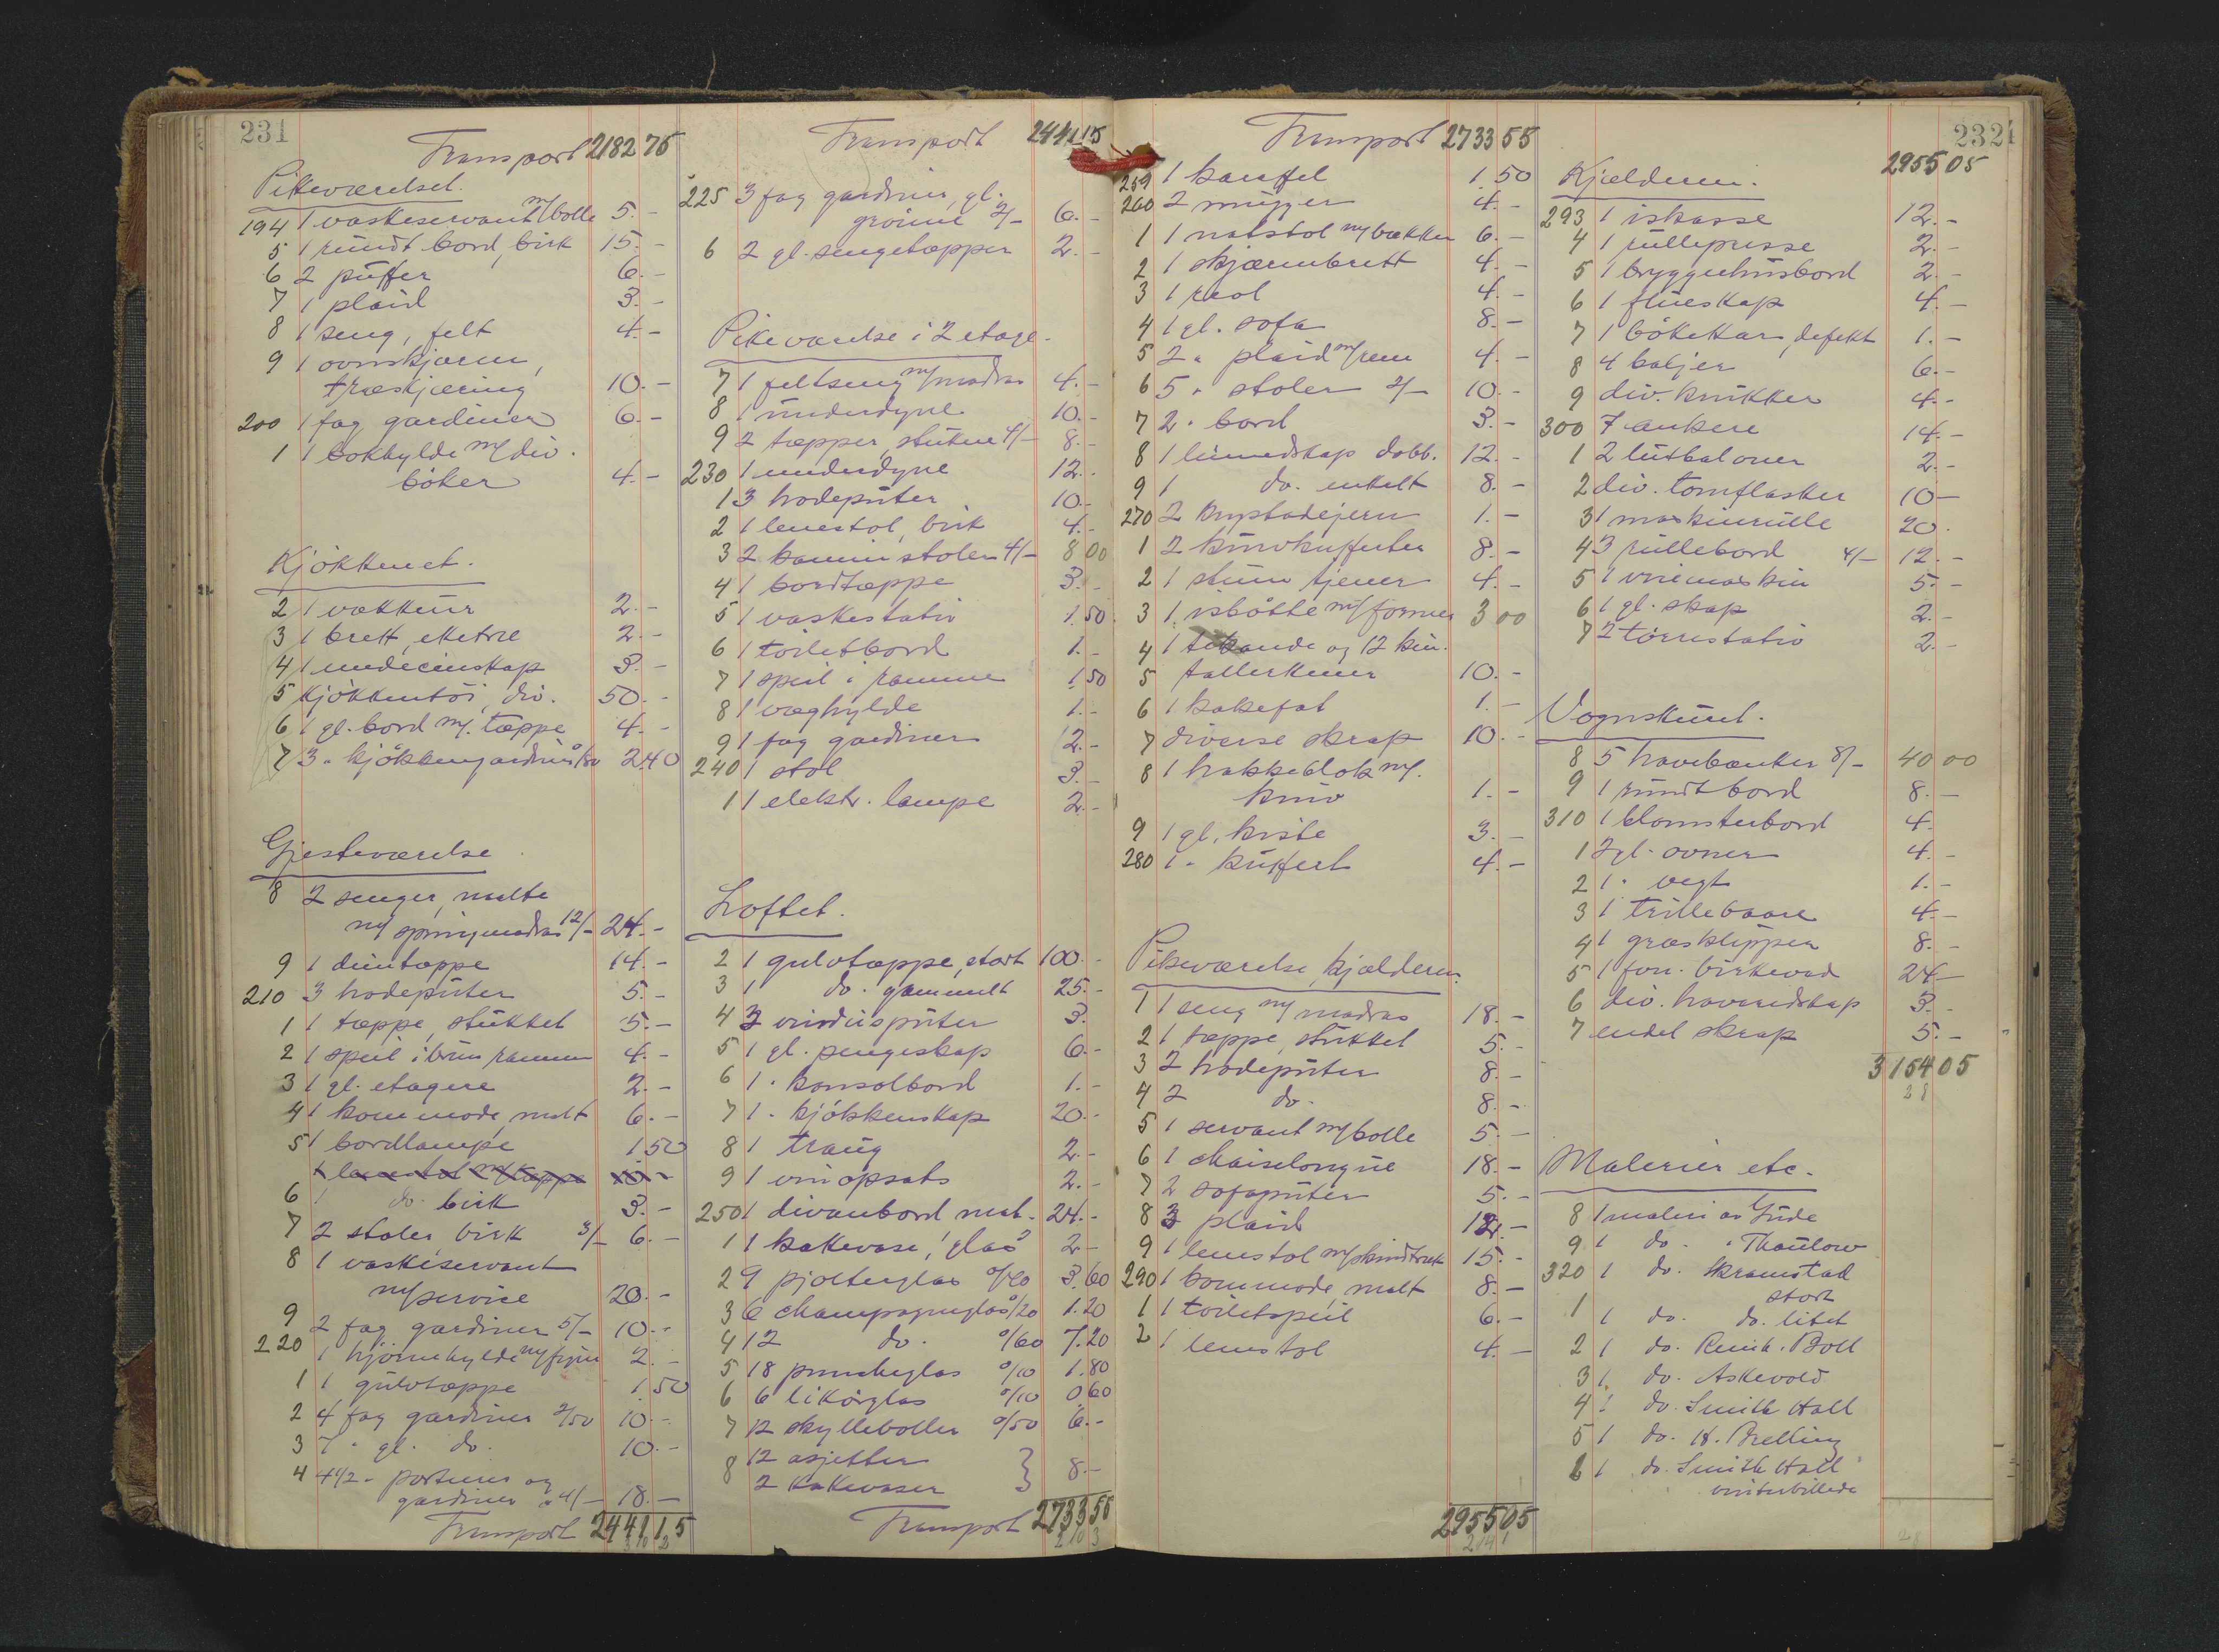 231
Transport 2182 75
Pikeværelset.
194 1 vaskeservant m/bolle 5.-
5 1 rundt bord, birk 15.-
6 2 puffer 6.-
7 1 plaid 3.-
8 1 seng, felt 4.-
9 1 ovnskjærm,
træskjæring 10.-
200 1 fag gardiner 6.-
1 1 bokhylde m/ div.
bøker 4.-
Kjökkenet.
2 1 vækkeur 2.-
3 1 brett, eketræ 2.-
4 1 medecinskap 3.-
5 Kjökkentöi, div. 50.-
6 1 gl. bord m/. tæppe 4.-
7 3 " kjökkengardiner 0/80 2.40
Gjesteværelse
8 2 senger, malte
m/ springmadras 12/- 24.-
9 1 duntæppe 14.-
210 3 hodeputer 5.-
1 1 tæppe, stukket 5.-
2 1 speil i brun ramme 4.-
3 1 gl. etagere 2.-
4 1 kommode, malt 6.-
5 1 bordlampe 1 50
1 lænestol m/tæppe 10.-
6 1 do. birk 3.-
7 2 stoler, birk 3/- 6.-
8 1 vaskeservant
m/service 20.-
9 2 fag gardiner 5/- 10.-
220 1 hjörnehylde m/ 2.-
1 1 gulvtæppe 1.50
2 4 fag gardiner 2/50 10.-
3 7 " gl. do. 10.-
4 4 1/2 " portierer og
gardiner a 4/- 18.-
Transport 2441 15
Transport 2441 15
225 3 fag gardiner, gl.
grönne 2/- 6.-
6 2 gl. sengetæpper 2.-
Pikeværelse i 2 etage.
7 1 feltseng m/madras 4.-
8 1 underdyne 10.-
9 2 tæpper, stukne 4/- 8.-
230 1 underdyne 12.-
1 3 hodeputer 10.-
2 1 lenestol, birk 4.-
3 2 kaminstoler 4/- 8 00
4 1 bordtæppe 3.-
5 1 vaskestativ 1.50
6 1 toiletbord 1.-
7 1 speil i ramme 1.50
8 1 væghylde 1.-
9 1 fag gardiner 2.-
240 1 stol 3.-
1 1 elektr. lampe 2.-
Loftet.
2 1 gulvtæppe, stort 100.-
3 1 do. gammelt 25.-
4 3 vindusputer 3.
5 1 gl. pengeskap 6.-
6 1 " konsolbord 1.-
7 1 " kjökkenskap 20.-
8 1 traug 2.-
9 1 vinopsats 2.-
250 1 divanbord mah. 24.-
1 1 kakevase, glas 2.-
2 9 pjolterglas 0/40 3.60
3 6 champagneglas 0/20 1.20
4 12 do. 0/60 7.20
5 18 puncheglas 0/10 1.80
6 6 likörglas 0/10 0 60
7 12 skylleboller 0/50 6.-
8 12 asjetter } 8.-
2 kakevaser
Transport 2733 55
Transport 2733 55
259 1 karafel 1.50
260 2 mugger 4.-
1 1 natstol m/bækken 6.-
2 1 skjærmbrett 4.-
3 1 reol 4.-
4 1 gl. sofa 8.-
5 2 " plaid m/rem 4.-
6 5 " stoler 2/- 10.-
7 2 " bord 3.-
8 1 linnedskap dobb. 12.-
9 1 do. enkelt 8.-
270 2 krustadejern 1.-
1 2 kurvkufferter 8.-
2 1 stum tjener 4.-
3 1 isbøtte m/former 3 00
4 1 tekande og 12 kin.
5 tallerkener 10.-
6 1 kakefat 1.-
7 diverse skrap 10.-
8 1 hakkeblok m/.
kniv 1.-
9 1 gl. kiste 3.-
280 1 " kuffert 4.-
Pikeværelse, kjælderen.
1 1 seng m/ madras 18.-
2 1 tæppe, stukket 5.-
3 2 hodeputer 8.-
4 2 do. 8.-
5 1 servant m/bolle 5.-
6 1 chaiselongue 18.-
7 2 sofaputer 5.-
8 3 plaid 12.-
9 1 lenestol m/skindtræk 15.-
290 1 kommode, malt 8.-
1 1 toiletspeil 6.-
2 1 lenestol 4.-
2955 05
232
2955 05
Kjælderen.
293 1 iskasse 12.-
4 1 rullepresse 2.-
5 1 bryggerhusbord 2.-
6 1 flueskap 4.-
7 1 bökekar, defekt 1.-
8 4 baljer 6.-
9 div. krukker 4.-
300 7 ankere 14.-
1 2 lutbaloner 2.-
2 div. tomflasker 10-
3 1 maskinrulle 20.
4 3 rullebord 4/- 12.-
5 1 vrimaskin 5.-
6 1 gl. skap 2.-
7 2 törrestativ 2.-
Vognskuret.
8 5 havebænker 8/- 40 00
9 1 rundt bord 8.-
310 1 blomsterbord 4.
1 2 gl. ovner 4.-
2 1 " vegt 1.-
3 1 trillebaare 4.-
4 1 græsklipper 8.-
5 1 fvn. birkeved 24-
6 div. haveredskap 3.-
7 endel skrap 5.-
3154 05
Malerier etc.
8 1 maleri av Gude
9 1 do. " Thaulow
320 1 do. Skramstad
stort
1 1 do. do. litet
2 1 do. Reinh. Boll
3 1 do. Askevold
4 1 do. Smith Hald
5 1 do. K. Brelling
6 1 do. Smith Hald
vinterbillede